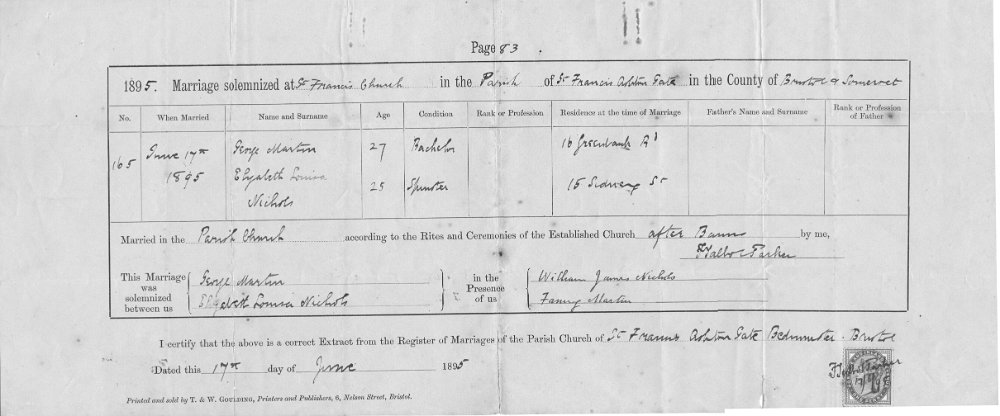 Page 83.
1895. Marriage solemnized at St Francis Church in the Parish of St Francis Ashton Gate in the County of Bristol & Somerset
No. When Married Name and Surname Age Condition Rank or Profession Residence at the time of Marriage Father's Name and Surname Rank or Profession of Father
165 June 17th George Martin 27 Bachelor 16 Greenbank Rd
1895 Elizabeth Louisa 25 Spinster 15 Sidney St
Nichols
Married in the Parish Church according to the Rites and Ceremonies of the Established Church after Banns by me,
Talbot Parker
This Marriage was solemnized between us George Martin in the Presence of us William James Nichols
Elizabeth Louisa Nichols Fanny Martin
I certify that the above is a correct Extract from the Register of Marriages of the Parish Church of St Francis Ashton Gate Bedminster. Bristol
Dated this 17th day of June 1895
Printed and sold by T. & W. GOULDING, Printers and Publishers, 6, Nelson Street, Bristol.